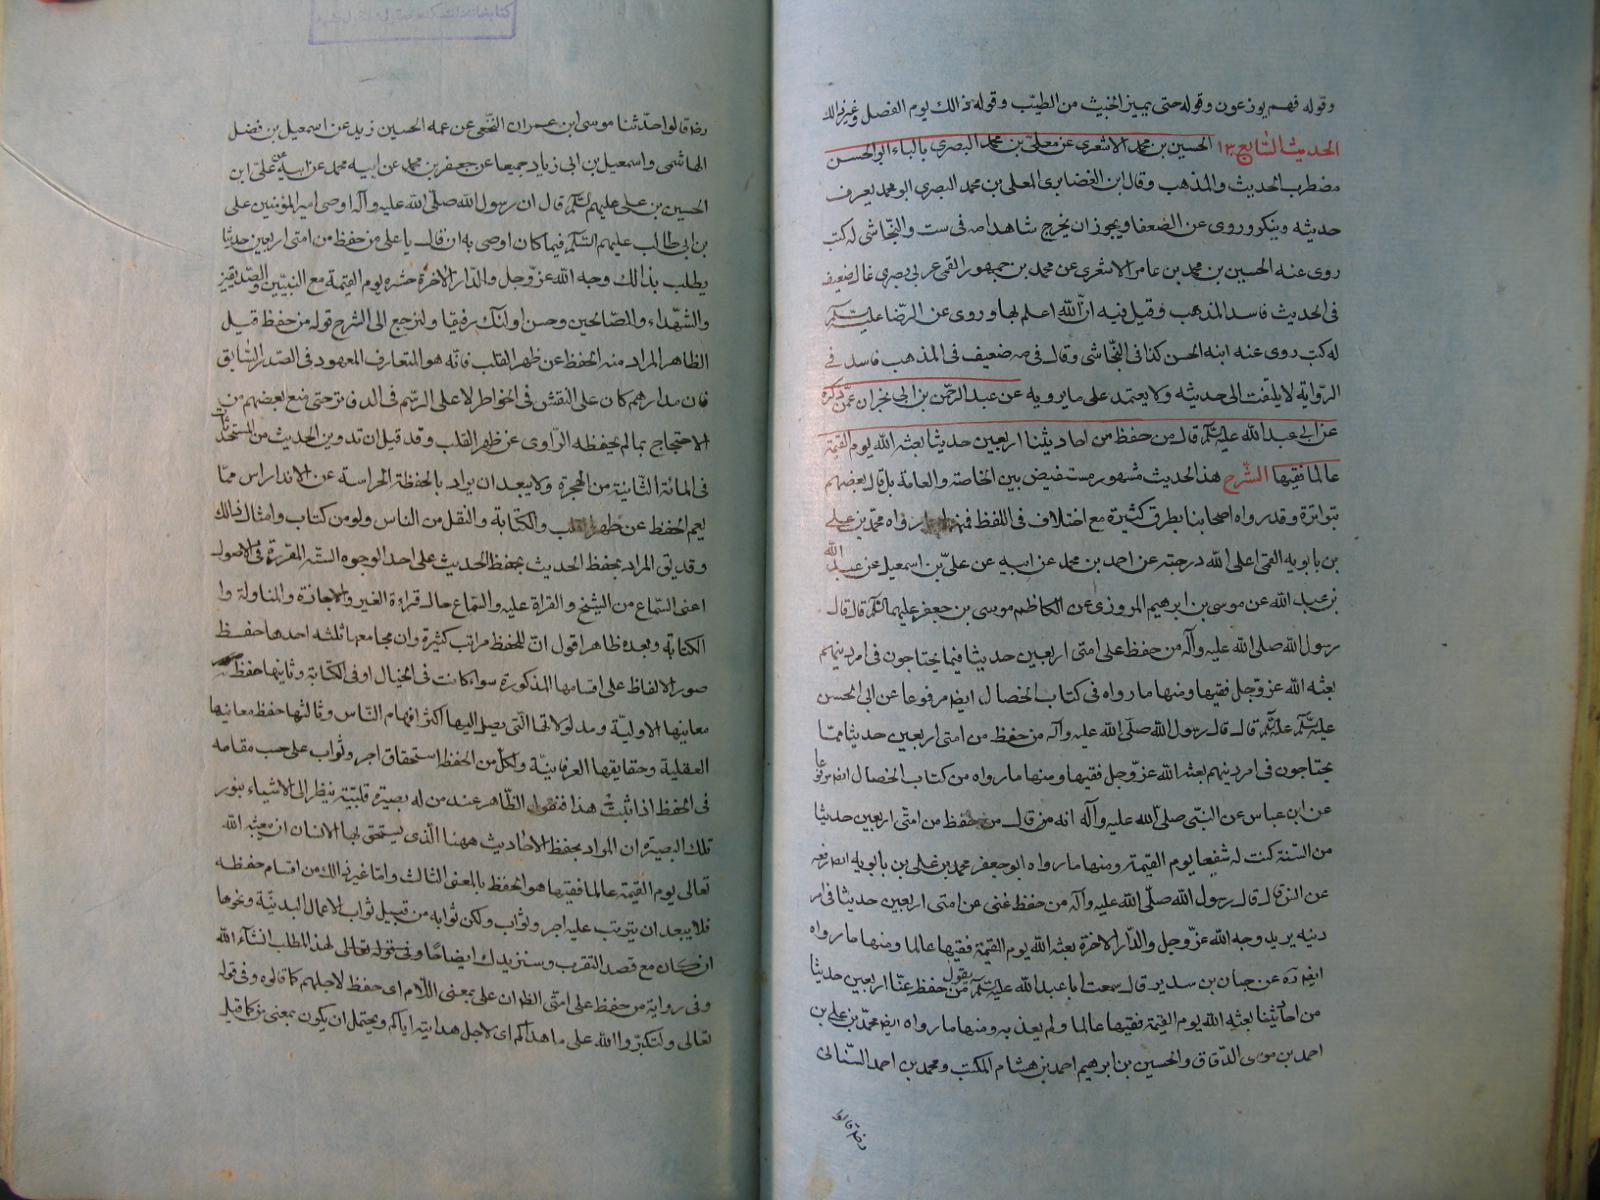 وقوله فهم يوزعون وقوله حتى يميز الخبيث من الطيّب وقوله ذالك يوم الفصل وغير ذالك
الحديث السّابع ١٣ الحسين بن محمد الاشعرى عن معلّى بن محمد البصرى بالباء ابوالحسن
مضطرب الحديث والمذهب وقال ابن الغضايرى المعلى بن محمد البصرى ابو محمد يعرف
حديثه وينكر وروى عن الضعفا ويجوز ان يخرج شاهدا صه فى ست والنّجاشى له كتب
روى عنه الحسين بن محمد بن عامر الاشعرى عن محمد بن جمهور القمى عربى بصرى غال ضعيف
فى الحديث فاسد المذهب وقيل فيه انّ الله اعلم بها وروى عن الرّضا عليه السّلم
له كتب روى عنه ابنه الحسن كذا فى النّجاشى وقال فى صه ضعيف فى المذهب فاسد فى
الرّواية لا يلتفت الى حديثه ولا يعتمد على ما يرويه عن عبد الرحمن بن ابى نجران عمّن ذكره
عن ابى عبد الله عليه السّلم قال من حفظ من احاديثنا اربعين حديثا بعثه الله يوم القيمة
عالما فقيها الشّرح هذا الحديث مشهور مستفيض بين الخاصة والعامة بل قال بعضهم
بتواترة وقد رواه اصحابنا بطرق كثيرة مع اختلاف فى اللفظ فمنها ما رواه محمّد بن على
بن بابويه القمى اعلى الله درجته عن احمد بن محمد عن ابيه عن علىّ بن اسمعيل عن عبد الله
بن عبد الله عن موسى بن ابرهيم المروزى عن الكاظم موسى بن جعفر عليهما السّلم قال قال
رسول الله صلى الله عليه وآله من حفظ على امتى اربعين حديثا فيما يحتاجون فى امر دينهم
بعثه الله عز وجل فقيها ومنها ما رواه فى كتاب الخصال ايضا مرفوعا عن ابى الحسن
عليه السّلم قال قال رسول الله صلّى الله عليه وآله من حفظ من امتى اربعين حديثا ممّا
يحتاجون فى امر دينهم بعثه الله عزّ وجل فقيها ومنها ما رواه من كتاب الخصال ايضا مرفوعا
عن ابن عباس عن النبّى صلّى الله عليه وآله انه من قال من حفظ من امتّى اربعين حديثا
من السّنة كنت له شفيعا يوم القيمة ومنها ما رواه ابو جعفر محمد بن على بن بابويه ايضا رفعه
عن قال قال رسول الله صلّى الله عليه وآله من حفظ عنى من امتى اربعين حديثا فى امر
دينه يريد وجه الله عز وجل والدّار الاخرة بعثه الله يوم القيمة فقيها عالما ومنها ما رواه
ايضا ره عن حنان بن سدير قال سمعت ابا عبد الله عليه السّلم يقول من حفظ عنّا اربعين حديثا
من احاديثنا بعثه الله يوم القيمة فقيها عالما ولم يعذبه ومنها ما رواه ايضا محمّد بن على بن
احمد بن موسى الدّقاق والحسين بن ابرهيم احمد بن هشام المكتب ومحمد بن احمد السّنانى
رضم قالوا
رضم قالوا حدّثنا موسى ابن عمران النّخعى عن عمه الحسين زيد عن اسمعيل بن فضل
الهاشمى واسمعيل بن ابى زياد جميعا عن جعفر بن محمد عن ابيه محمد عن ابيه علىّ ابن
الحسين بن على عليهم السّلم قال ان رسول الله صلّى الله عليه وآله اوصى امير المؤمنين على
بن ابى طالب عليهم السّلم فيما كان اوصى به ان قال يا على من حفظ من امتى اربعين حديثا
يطلب بذالك وجه الله عزّ وجل والدّار الاخرة حشره يوم القيمة مع النبيّين والصّديقين
والشهداء والصّالحين وحسن اولئك رفيقا ولنرجع الى الشرح قوله من حفظ قيل
الظاهر المراد منه الحفظ عن ظهر القلب فانّه هو المتعارف المعهود فى الصّدر السّابق
فان مدارهم كان على النقش فى الخواطر لا على الرسّم فى الدفاتر حتى منع بعضهم من
الاحتجاج بما لم يحفظه الرّاوى عن ظهر القلب وقد قيل ان تدوين الحديث من المستحدثات
فى المائة الثّانية من الهجرة ولا يبعد ان يراد بالحفظة الحراسة عن الاندراس ممّا
يعم الحفظ عن ظهر القلب والكتابة والنقل من الناس ولو من كتاب وامثال ذالك
وقد يق المراد بحفظ الحديث بحفظ الحديث على احد الوجوه السّتّة المقررة فى الاصول
اعنى السّماع من الشيخ والقراة عليه والسّماع حال قراءة الغير والاجازة والمناولة وا
الكتابة وبعده ظاهر اقول انّ للحفظ مراتب كثيرة وان مجامعها ثلثه احدها حفظ
صور الالفاظ على اقسامها المذكورة سواء كانت فى الخيال او فى الكتابة وثانيها حفظ
معانيها الاوليّة ومدلولاتها الّتى يصل اليها اكثر افهام النّاس وثالثها حفظ معانيها
العقلية وحقايقها العرفانيّة ولكلّ من الحفظ استحقاق اجر وثواب على حسب مقامه
فى الحفظ اذا ثبت هذا فنقول الظّاهر عند من له بصيرة قلبيّة ينظر الى الاشياء بنور
تلك البصيرة ان المراد بحفظ الاحاديث ههنا الّذى يستحق بها الانسان ان يبعثه الله
تعالى يوم القيمة عالما فقيها هو الحفظ بالمعنى الثالث وامّا غير ذالك من اقسام حفظه
فلا يبعد ان يترتب عليه اجر وثواب ولكن ثوابه من قبيل ثواب الاعمال البدنيّة ونحوها
ان كان مع قصد التقرب وسنزيدك ايضاحا وفى قوله تعالى لهذا المطلب انشاء الله
وفى رواية من حفظ على امتّى الظ ان على بمعنى اللّام اى حفظ لاجلهم كما قالوه فى قوله
تعالى ولتكبّروا الله على ما هداكم اى لاجل هدايته اياكم ويحتمل ان يكون بمعنى من كما قيل